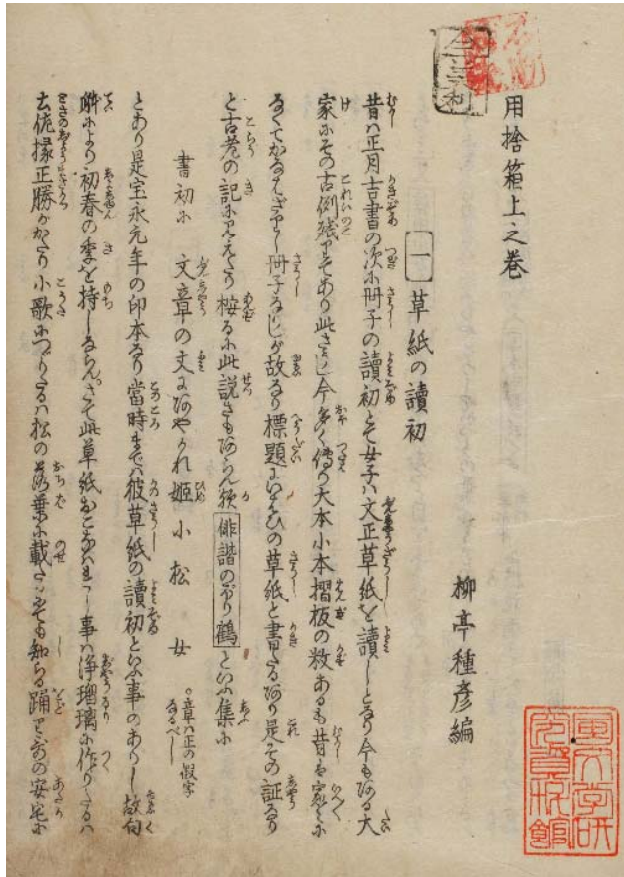 用捨箱上之巻
柳亭種彦編
一 草紙の讀初
昔ハ正月吉書の次に冊子の讀初とて女子ハ文正草紙を讀しとなり今もある大
家にその古例残りてあり此さうし今多く傳り大本小本摺板の数あるも昔は家々に
なくてかなはざりし冊子なりしが故なり標題にいはひの草紙と書たるあり是その証なり
と古老の記に見えたり按るに此説さもあらん歟俳諧のぼり鶴といふ集に
書初に 文章の丈にあやかれ姫小松 女 。章ハ正の假字なるべし
とあり是宝永元年の印本なり當時までハ彼草紙の讀初といふ事のありし故句
により初春の季を持しならん。さて此草紙おこなはれし事ハ浄瑠璃に作りたるハ
土佐掾正勝がかたり小歌につゞりたるハ松の落葉に載 も知る踊 の安宅に